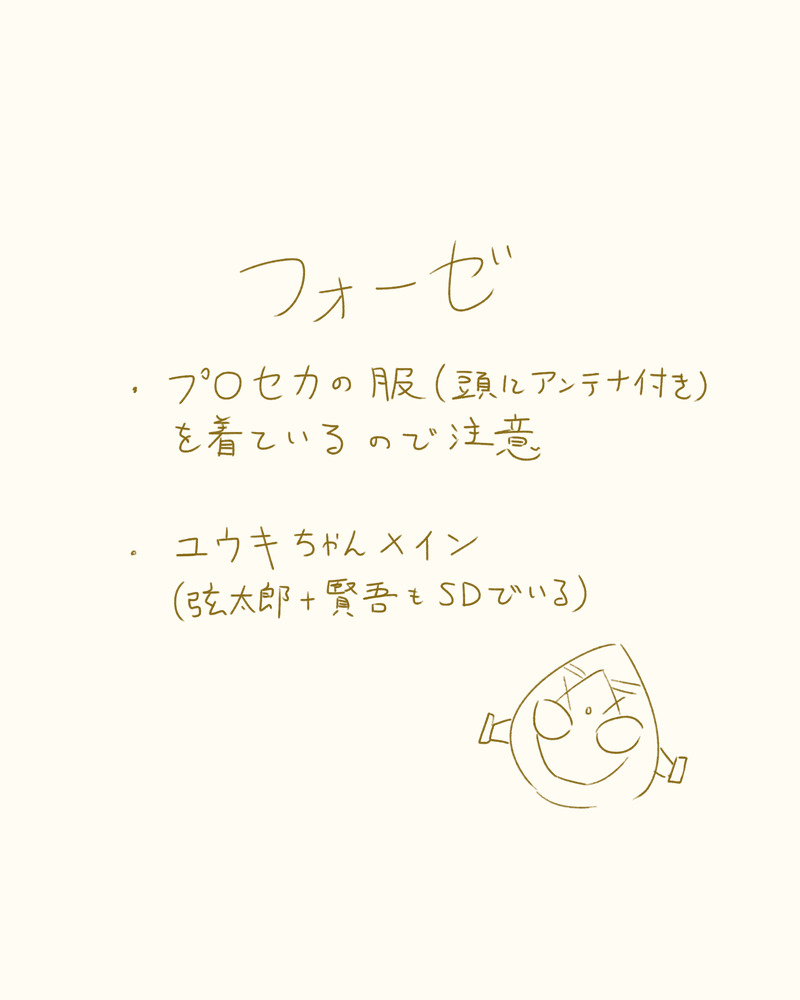 フォーゼ
・プ〇セカの服(頭にアンテナ付き)
を着ているので注意
・ユウキちゃんメイン
(弦太郎+賢吾もSDでいる)